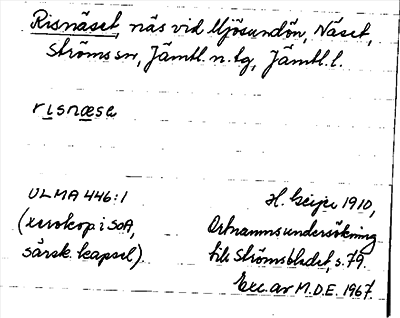 Risnäset, näs vid Mjösundön, Näset,
Ströms sn, Jämtl. n. tg, Jämtl. l.
risnæse
ULMA 446:1
(xerokop. i SOA,
särsk. kapsel).
H. Geijer 1910,
Ortnamnsundersökning
till Strömsbladet, s. 79.
Exc. av M.D.E. 1967.